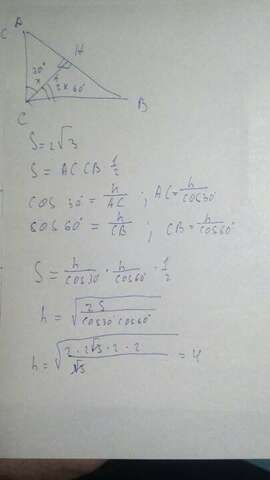 C A
H
30°
x
2x 60°
C
B
S = 2√3
S = AC CB 1/2
cos 30° = h/AC ; AC = h/cos30
cos 60° = h/CB ; CB = h/cos60°
S = h/cos30 · h/cos60° · 1/2
h = √(2S/cos30° cos60°)
h = √(2 · 2√3 · 2 · 2/√3) = 4